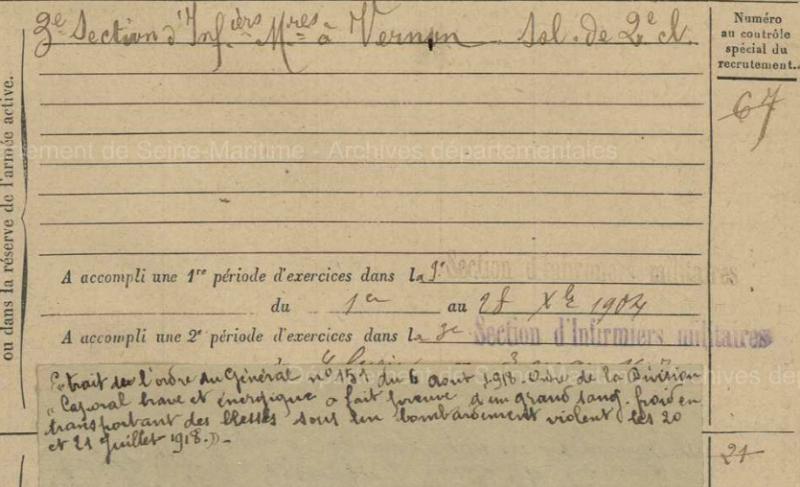 3e Section d'Infiers Mres à Vernon Sol. de 2e cl.
Numéro
au contrôle
spécial du
recrutement.
67
ou dans la réserve de l'armée active.
ement de Seine-Maritime - Archives départementales
A accompli une 1re période d'exercices dans la 3e Section d'Infirmiers militaires
du 1er au 28 Xbre 1904
A accompli une 2e période d'exercices dans la 3e Section d'Infirmiers militaires
Extrait de l'ordre du Général no 151 du 6 aout 1918. Ordre de la Division
"Caporal brave et énergique a fait preuve d'un grand sang-froid en
transportant des blessés sous un bombardement violent les 20
et 21 Juillet 1918.))-
21